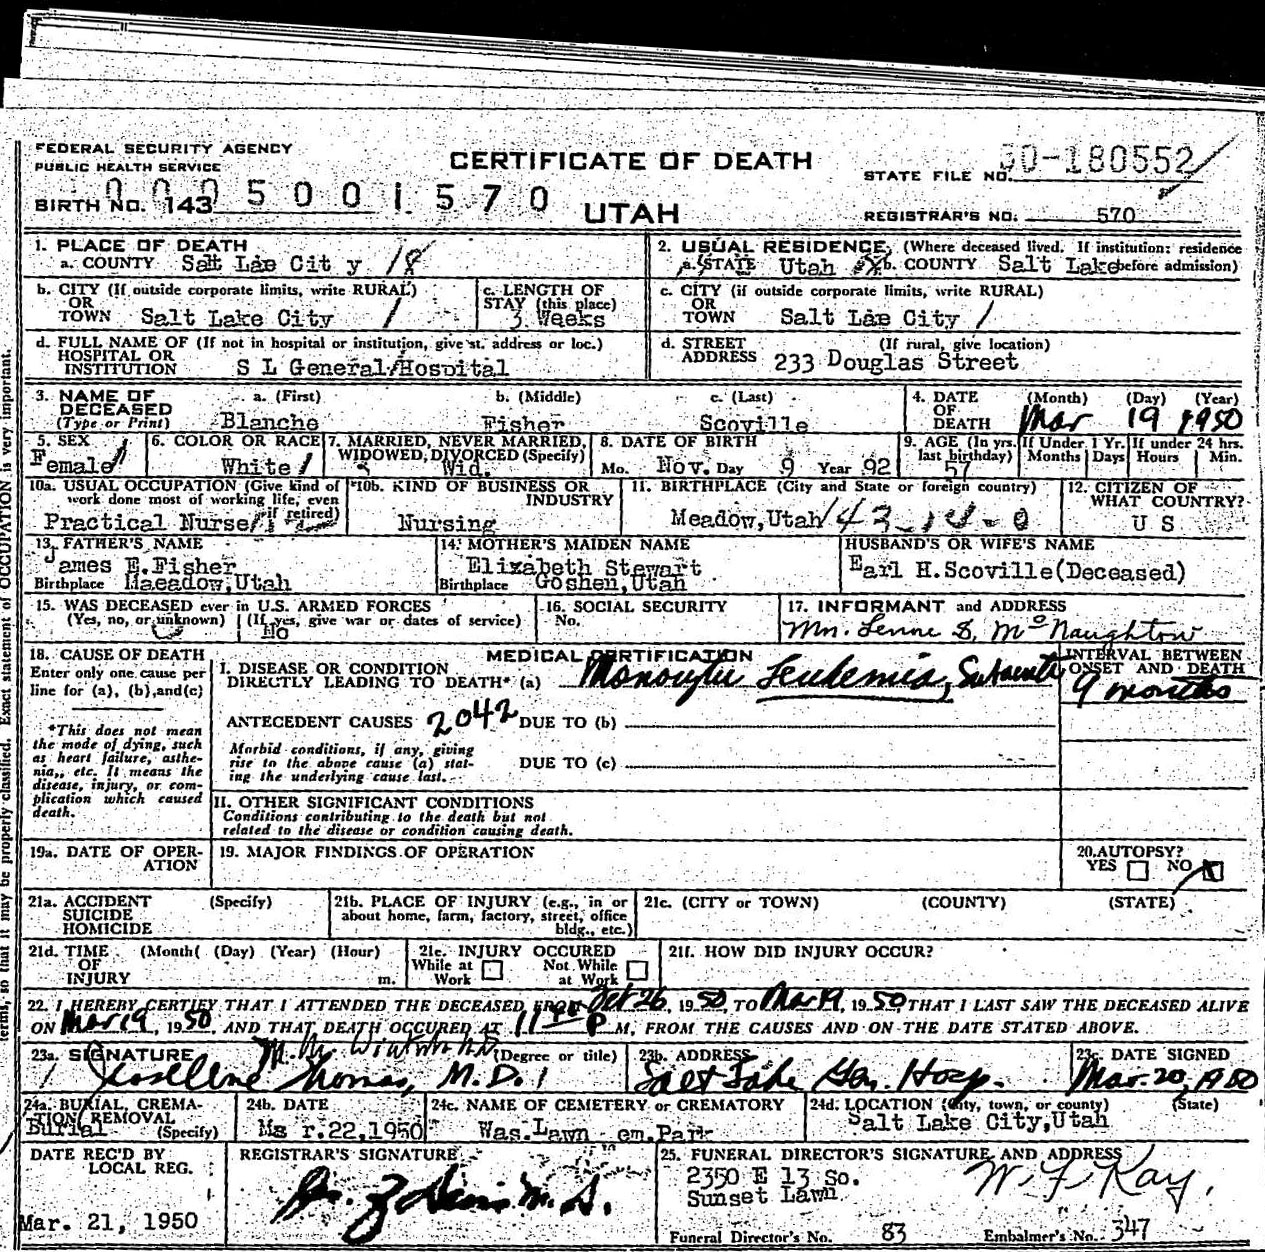 FEDERAL SECURITY AGENCY
PUBLIC HEALTH SERVICE
CERTIFICATE OF DEATH
STATE FILE NO. 50-180552
BIRTH NO. 143 0005001570
UTAH
REGISTRAR'S NO. 570
1. PLACE OF DEATH
a. COUNTY Sa&t Lae Cit y 18
2. USUAL RESIDENCE (Where deceased lived. If institution: residence
a. STATE Utah b. COUNTY Salt Lake before admission)
b. CITY (If outside corporate limits, write RURAL)
OR
TOWN Salt Lake City 1
c. LENGTH OF
STAY (this place)
3 Weeks
c. CITY (if outside corporate limits, write RURAL)
OR
TOWN Salt Lae City 1
d. FULL NAME OF (If not in hospital or institution, give st. address or loc.)
HOSPITAL OR
INSTITUTION S L General Hospital
d. STREET (If rural, give location)
ADDRESS 233 Douglas Street
3. NAME OF a. (First) b. (Middle) c. (Last)
DECEASED
(Type or Print) Blanche Fisher Scoville
4. DATE (Month) (Day) (Year)
OF
DEATH Mar 19 1950
5. SEX
Female
6. COLOR OR RACE
White
7. MARRIED, NEVER MARRIED,
WIDOWED, DIVORCED (Specify)
Wid.
8. DATE OF BIRTH
Mo. Nov. Day 9 Year 92
9. AGE (In yrs.
last birthday)
57
If Under 1 Yr.
Months Days
If under 24 hrs.
Hours Min.
10a. USUAL OCCUPATION (Give kind of
work done most of working life, even
if retired)
Practical Nurse
10b. KIND OF BUSINESS OR
INDUSTRY
Nursing
11. BIRTHPLACE (City and State or foreign country)
Meadow,Utah 43-14-0
12. CITIZEN OF
WHAT COUNTRY?
U S
13. FATHER'S NAME
James E.Fisher
Birthplace Maeadow,Utah
14. MOTHER'S MAIDEN NAME
Elizabeth Stewart
Birthplace Goshen,Utah
HUSBAND'S OR WIFE'S NAME
Earl H.Scoville(Deceased)
15. WAS DECEASED ever in U.S. ARMED FORCES
(Yes, no, or unknown) (If yes, give war or dates of service)
No
16. SOCIAL SECURITY
No.
17. INFORMANT and ADDRESS
McNaughton
18. CAUSE OF DEATH
Enter only one cause per
line for (a), (b), and (c)
*This does not mean
the mode of dying, such
as heart failure, asthe-
nia,, etc. It means the
disease, injury, or com-
plication which caused
death.
MEDICAL CERTIFICATION
I. DISEASE OR CONDITION
DIRECTLY LEADING TO DEATH* (a) Monocytic Leukemia, Subacute
INTERVAL BETWEEN
ONSET AND DEATH
9 months
ANTECEDENT CAUSES 2042 DUE TO (b)
Morbid conditions, if any, giving
rise to the above cause (a) stat-
ing the underlying cause last.
DUE TO (c)
II. OTHER SIGNIFICANT CONDITIONS
Conditions contributing to the death but not
related to the disease or condition causing death.
19a. DATE OF OPER-
ATION
19. MAJOR FINDINGS OF OPERATION
20. AUTOPSY?
YES NO
21a. ACCIDENT (Specify)
SUICIDE
HOMICIDE
21b. PLACE OF INJURY (e.g., in or
about home, farm, factory, street, office
bldg., etc.)
21c. (CITY or TOWN) (COUNTY) (STATE)
21d. TIME (Month( (Day) (Year) (Hour)
OF
INJURY m.
21e. INJURY OCCURED
While at Work Not While at Work
21f. HOW DID INJURY OCCUR?
22. I HEREBY CERTIFY THAT I ATTENDED THE DECEASED FROM Feb 26, 1950, TO Mar 19, 1950, THAT I LAST SAW THE DECEASED ALIVE
ON Mar 19, 1950, AND THAT DEATH OCCURED AT 11 P M, FROM THE CAUSES AND ON THE DATE STATED ABOVE.
23a. SIGNATURE (Degree or title)
Thomas, M.D.
23b. ADDRESS
Salt Lake Gen. Hosp.
23c. DATE SIGNED
Mar. 20, 1950
24a. BURIAL, CREMA-
TION, REMOVAL
Burial (Specify)
24b. DATE
Ms r.22,1950
24c. NAME OF CEMETERY or CREMATORY
Was.Lawn em.Park
24d. LOCATION (City, town, or county) (State)
Salt Lake City,Utah
DATE REC'D BY
LOCAL REG.
Mar. 21, 1950
REGISTRAR'S SIGNATURE
M.D.
25. FUNERAL DIRECTOR'S SIGNATURE AND ADDRESS
2350 E 13 So.
Sunset Lawn
W. F. Kay,
Funeral Director's No. 83 Embalmer's No. 347
terms, so that it may be properly classified. Exact statement of OCCUPATION is very important.